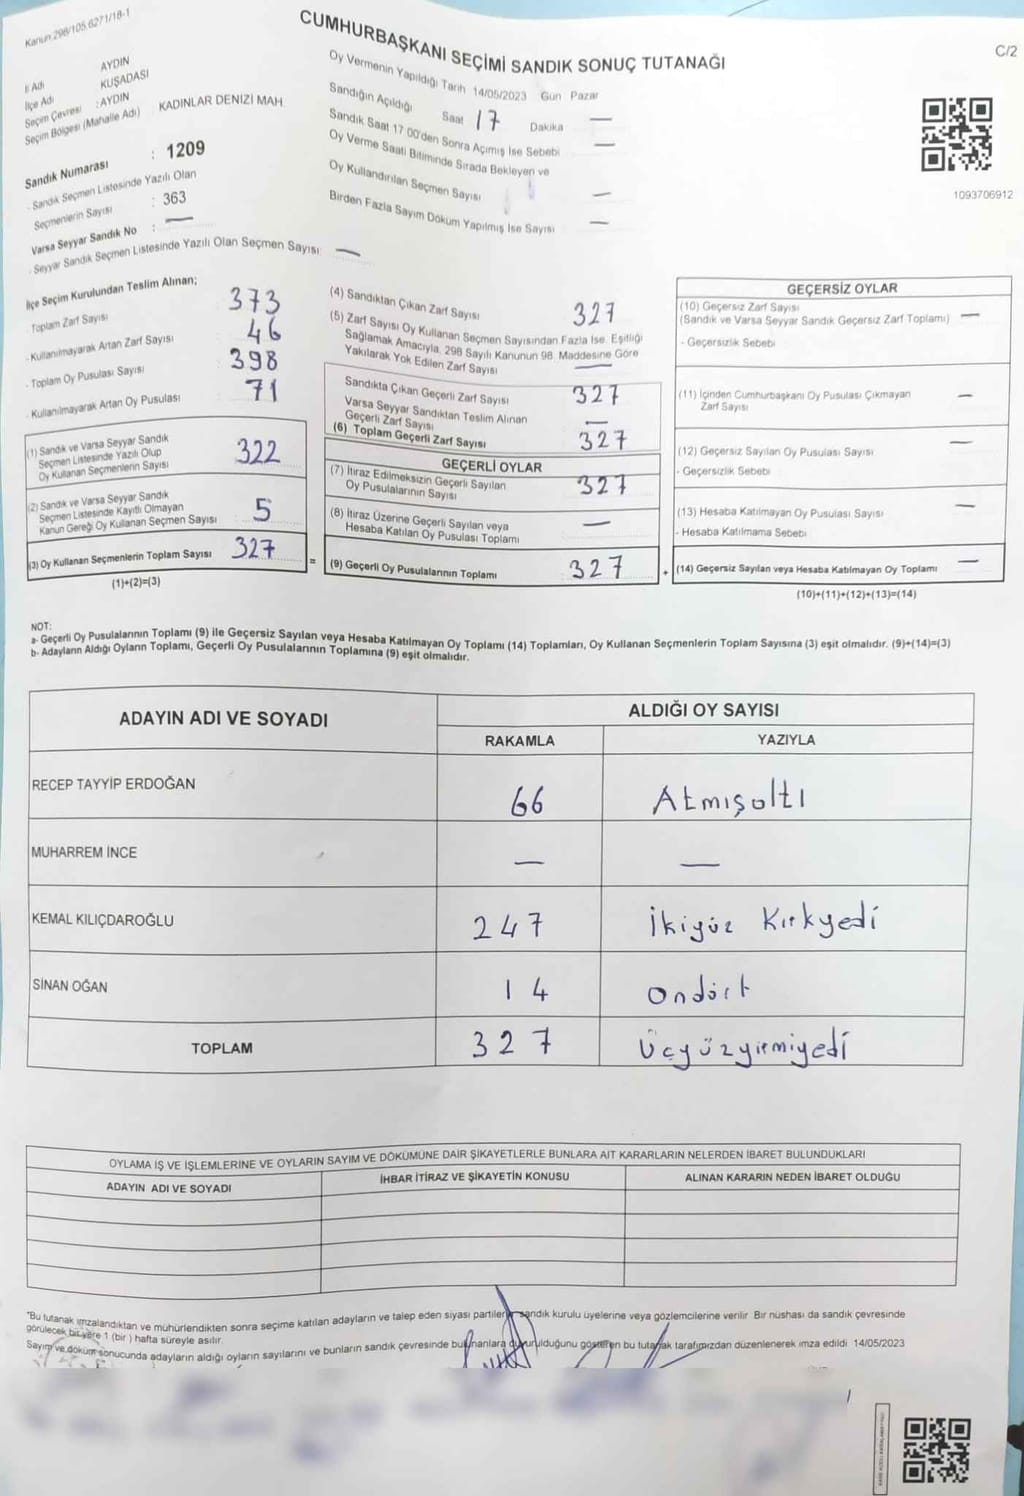 Kanun 298/105,6271/18-1
CUMHURBAŞKANI SEÇİMİ SANDIK SONUÇ TUTANAĞI
C/2
İl Adı AYDIN
İlçe Adı KUŞADASI
Seçim Çevresi : AYDIN
Seçim Bölgesi (Mahalle Adı) KADINLAR DENİZİ MAH.
Sandık Numarası : 1209
- Sandık Seçmen Listesinde Yazılı Olan
Seçmenlerin Sayısı : 363
Varsa Seyyar Sandık No : —
- Seyyar Sandık Seçmen Listesinde Yazılı Olan Seçmen Sayısı: —
Oy Vermenin Yapıldığı Tarih 14/05/2023 Gun Pazar
Sandığın Açıldığı Saat 17 Dakika —
Sandık Saat 17 00'den Sonra Açımış İse Sebebi —
Oy Verme Saati Bitiminde Sırada Bekleyen ve
Oy Kullandırılan Seçmen Sayısı —
Birden Fazla Sayım Döküm Yapılmış İse Sayısı —
1093706912
İlçe Seçim Kurulundan Teslim Alınan;
- Toplam Zarf Sayısı 373
- Kullanılmayarak Artan Zarf Sayısı 46
- Toplam Oy Pusulası Sayısı 398
- Kullanılmayarak Artan Oy Pusulası 71
(1) Sandık ve Varsa Seyyar Sandık
Seçmen Listesinde Yazılı Olup
Oy Kullanan Seçmenlerin Sayısı 322
(2) Sandık ve Varsa Seyyar Sandık
Seçmen Listesinde Kayıtlı Olmayan
Kanun Gereği Oy Kullanan Seçmen Sayısı 5
(3) Oy Kullanan Seçmenlerin Toplam Sayısı 327
(1)+(2)=(3)
=
(4) Sandıktan Çıkan Zarf Sayısı 327
(5) Zarf Sayısı Oy Kullanan Seçmen Sayısından Fazla İse. Eşitliği
Sağlamak Amacıyla, 298 Sayılı Kanunun 98. Maddesine Göre
Yakılarak Yok Edilen Zarf Sayısı —
Sandıkta Çıkan Geçerli Zarf Sayısı 327
Varsa Seyyar Sandıktan Teslim Alınan
Geçerli Zarf Sayısı —
(6) Toplam Geçerli Zarf Sayısı 327
GEÇERLİ OYLAR
(7) İtiraz Edilmeksizin Geçerli Sayılan
Oy Pusulalarının Sayısı 327
(8) İtiraz Üzerine Geçerli Sayılan veya
Hesaba Katılan Oy Pusulası Toplamı —
(9) Geçerli Oy Pusulalarının Toplamı 327
+
GEÇERSİZ OYLAR
(10) Geçersiz Zarf Sayısı
(Sandık ve Varsa Seyyar Sandık Geçersiz Zarf Toplamı) —
- Geçersizlik Sebebi
(11) İçinden Cumhurbaşkanı Oy Pusulası Çikmayan
Zarf Sayısı —
(12) Geçersiz Sayılan Oy Pusulası Sayısı —
- Geçersizlik Sebebi
(13) Hesaba Katılmayan Oy Pusulası Sayısı —
- Hesaba Katılmama Sebebi
(14) Geçersiz Sayılan veya Hesaba Katılmayan Oy Toplamı —
(10)+(11)+(12)+(13)=(14)
NOT:
a- Geçerli Oy Pusulalarının Toplamı (9) ile Geçersiz Sayılan veya Hesaba Katılmayan Oy Toplamı (14) Toplamları, Oy Kullanan Seçmenlerin Toplam Sayısına (3) eşit olmalıdır. (9)+(14)=(3)
b- Adayların Aldığı Oyların Toplamı, Geçerli Oy Pusulalarının Toplamına (9) eşit olmalıdır.
ADAYIN ADI VE SOYADI
ALDIĞI OY SAYISI
RAKAMLA YAZIYLA
RECEP TAYYİP ERDOĞAN 66 Atmışaltı
MUHARREM İNCE — —
KEMAL KILIÇDAROĞLU 247 İkiyüz Kırkyedi
SİNAN OĞAN 14 Ondört
TOPLAM 327 Üçyüzyirmiyedi
OYLAMA İŞ VE İŞLEMLERİNE VE OYLARIN SAYIM VE DÖKÜMÜNE DAİR ŞİKAYETLERLE BUNLARA AİT KARARLARIN NELERDEN İBARET BULUNDUKLARI
ADAYIN ADI VE SOYADI İHBAR İTİRAZ VE ŞİKAYETİN KONUSU ALINAN KARARIN NEDEN İBARET OLDUĞU
*Bu tutanak imzalandıktan ve mühürlendikten sonra seçime katılan adayların ve talep eden siyasi partilerin sandık kurulu üyelerine veya gözlemcilerine verilir Bir nüshası da sandık çevresinde
görülecek bir yere 1 (bir ) hafta süreyle asılır.
Sayım ve döküm sonucunda adayların aldığı oyların sayılarını ve bunların sandık çevresinde bulunanlara duyurulduğunu gösteren bu tutanak tarafımızdan düzenlenerek imza edildi 14/05/2023